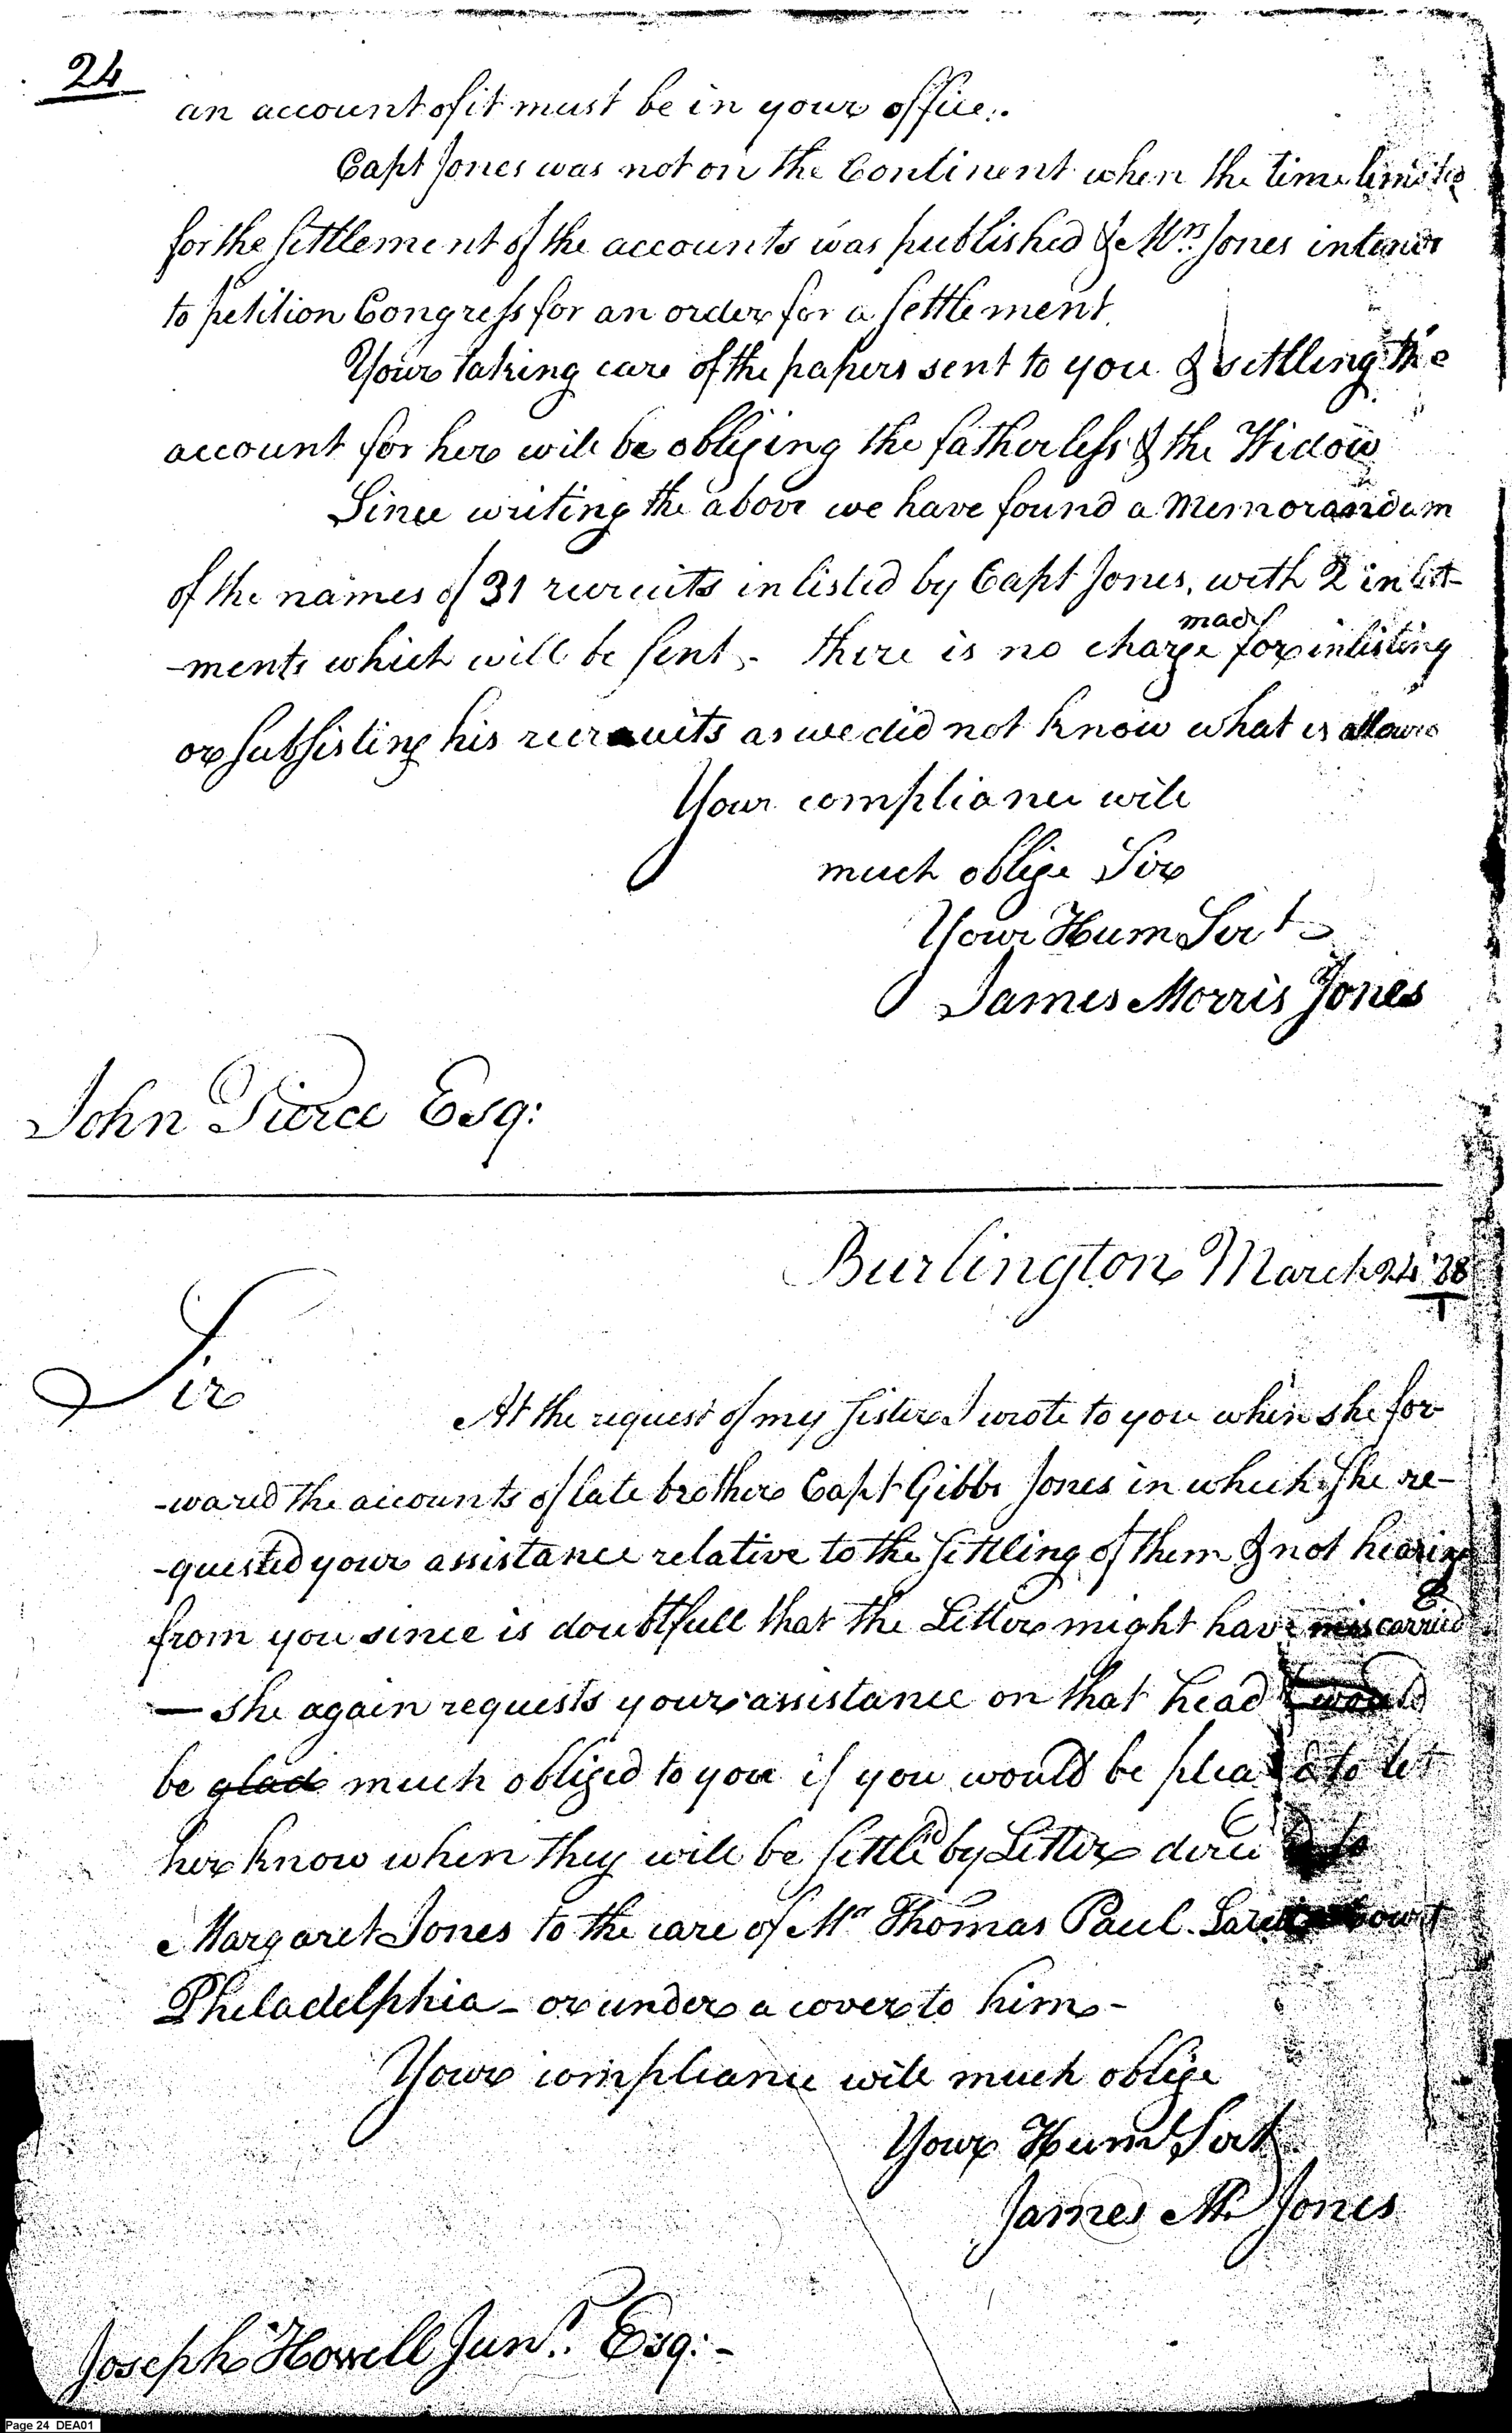 24
an account of it must be in your office.
Capt Jones was not on the Continent when the time limited
for the settlement of the accounts was published & Mrs. Jones intends
to petition Congress for an order for a settlement.
Your taking care of the papers sent to you & settling the
account for her will be obliging the fatherless & the Widow
Since writing the above we have found a Memorandum
of the names of 31 recruits inlisted by Capt Jones, with 2 inlist-
-ments which will be sent - there is no charge made for inlisting
or subsisting his recruits as we did not know what is allowed
Your compliance will
much oblige Sir
Your Hum Servt
James Morris Jones
John Pierce Esq:
Burlington March 24 '88
Sir
At the request of my sister I wrote to you when she for
-wared the accounts of late brother Capt Gibbs Jones in which she re-
-quested your assistance relative to the settling of them & not hearing
from you since is doubtfull that the Letter might have miscarried
— she again requests your assistance on that head & would
be glad much obliged to you if you would be pleased to let
her know when they will be settled by Letter directed to
Margaret Jones to the care of Mr Thomas Paul Court
Philadelphia - or under a cover to him -
Your compliance will much oblige
Your Humt Sert
James M Jones
Joseph Howell Junr. Esq: -
Page 24 DEA01